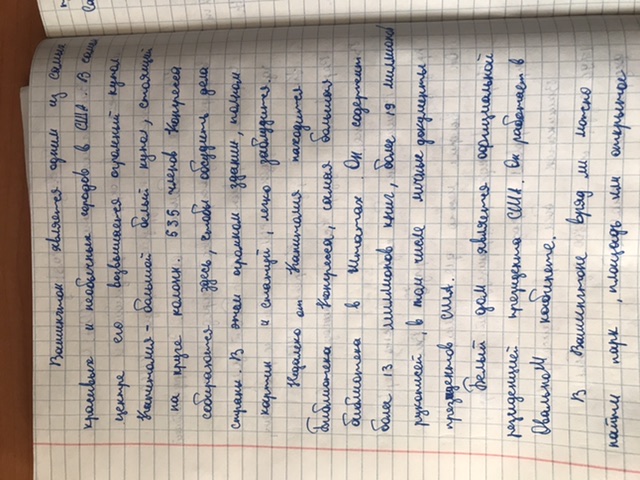 Вашингтон является одним из самых
красивых и необычных городов в США. В само
центре его возвышается огромный купол
Капитолия - большой белый купол, стоящий
на круге колонн. 535 членов Конгресса
собираются здесь, чтобы обсудить дела
страны. В этом огромном здании, полном
картин и статуй, легко заблудится.
Недалеко от Капитолия находится
Библиотека Конгресса, самая большая
библиотека в Штатах. Он содержит
более 13 миллионов книг, более 19 миллионов
рукописей, в том числе личные документы
президентов США.
Белый дом является официальной
резиденцией президента США. Он работает в
Овальном кабинете.
В Вашингтоне вряд ли можно
найти парк, площадь или открытое